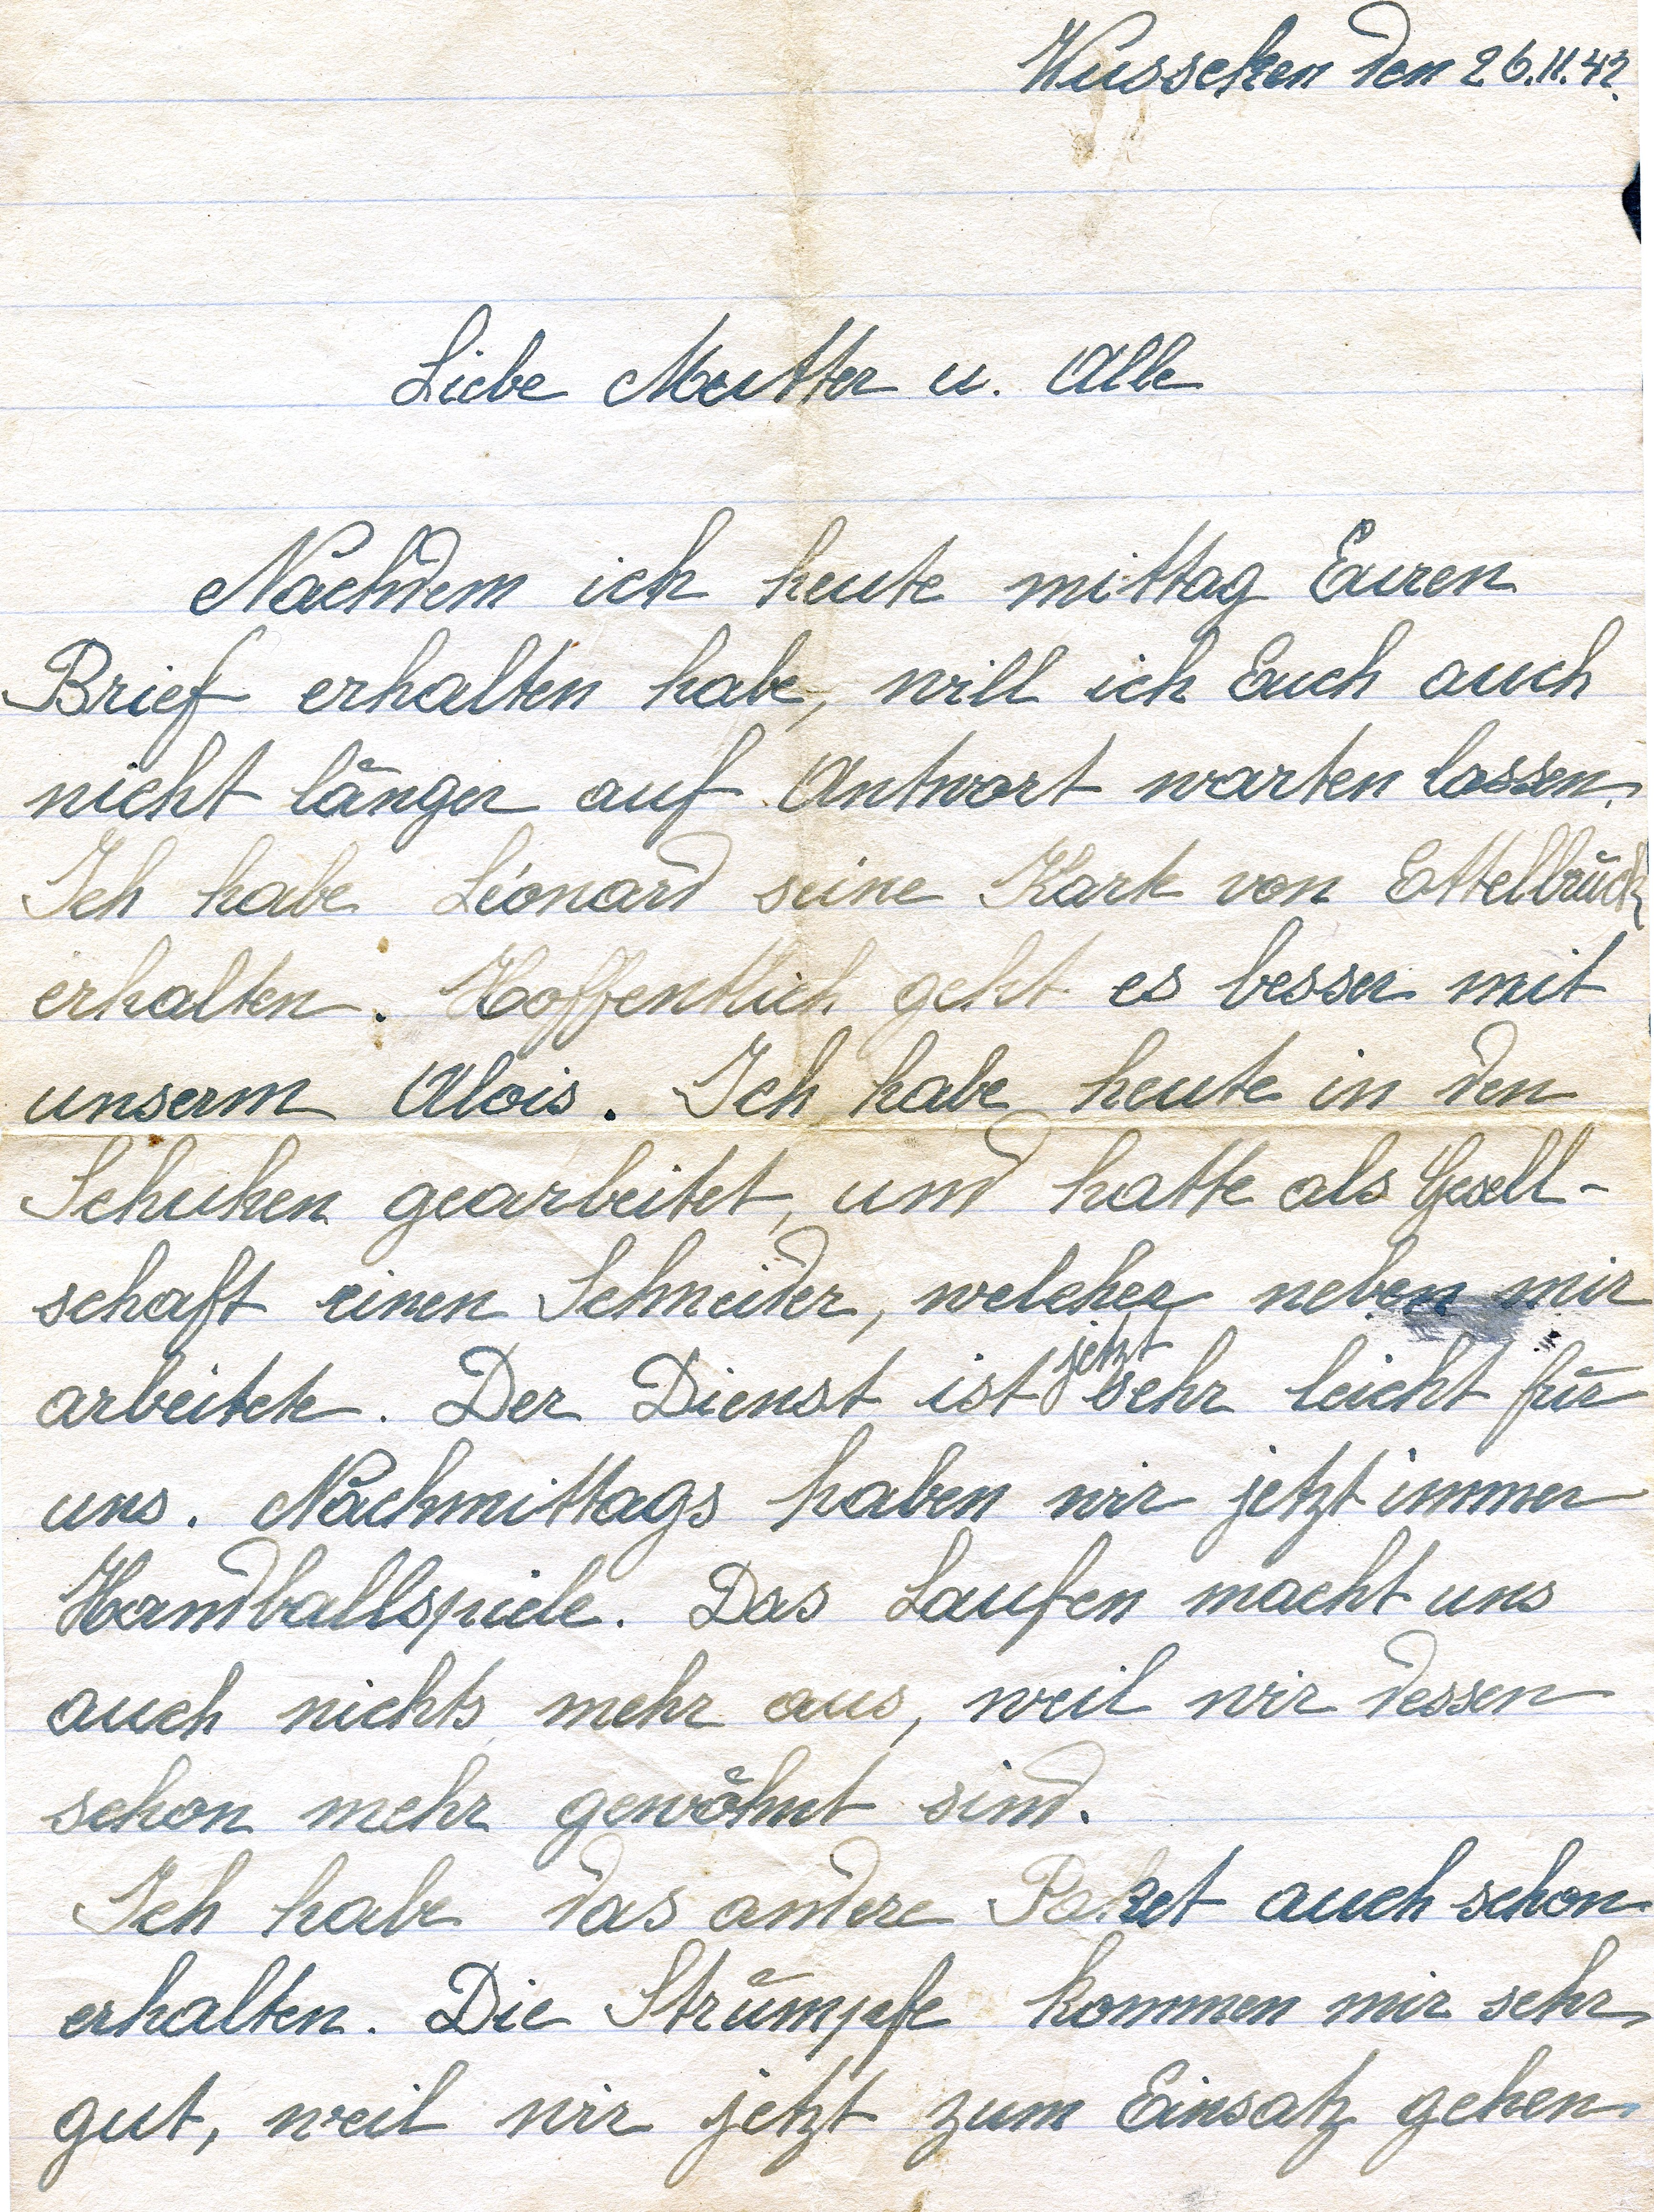 Wusseken den 26.11.42.
Liebe Mutter u. Alle
Nachdem ich heute mittag Euren
Brief erhalten habe, will ich Euch auch
nicht länger auf Antwort warten lassen.
Ich habe Léonard seine Karte von Ettelbrück
erhalten. Hoffentlich geht es besser mit
unserm Alois. Ich habe heute in den
Schuhen gearbeitet, und hatte als Gesell-
schaft einen Schneider, welcher neben mir
arbeitete. Der Dienst ist jetzt sehr leicht für
uns. Nachmittags haben wir jetzt immer
Handballspiele. Das Laufen macht uns
auch nichts mehr aus, weil wir dessen
schon mehr gewöhnt sind.
Ich habe das andere Paket auch schon
erhalten. Die Strümpfe kommen mir sehr
gut, weil wir jetzt zum Einsatz gehen.